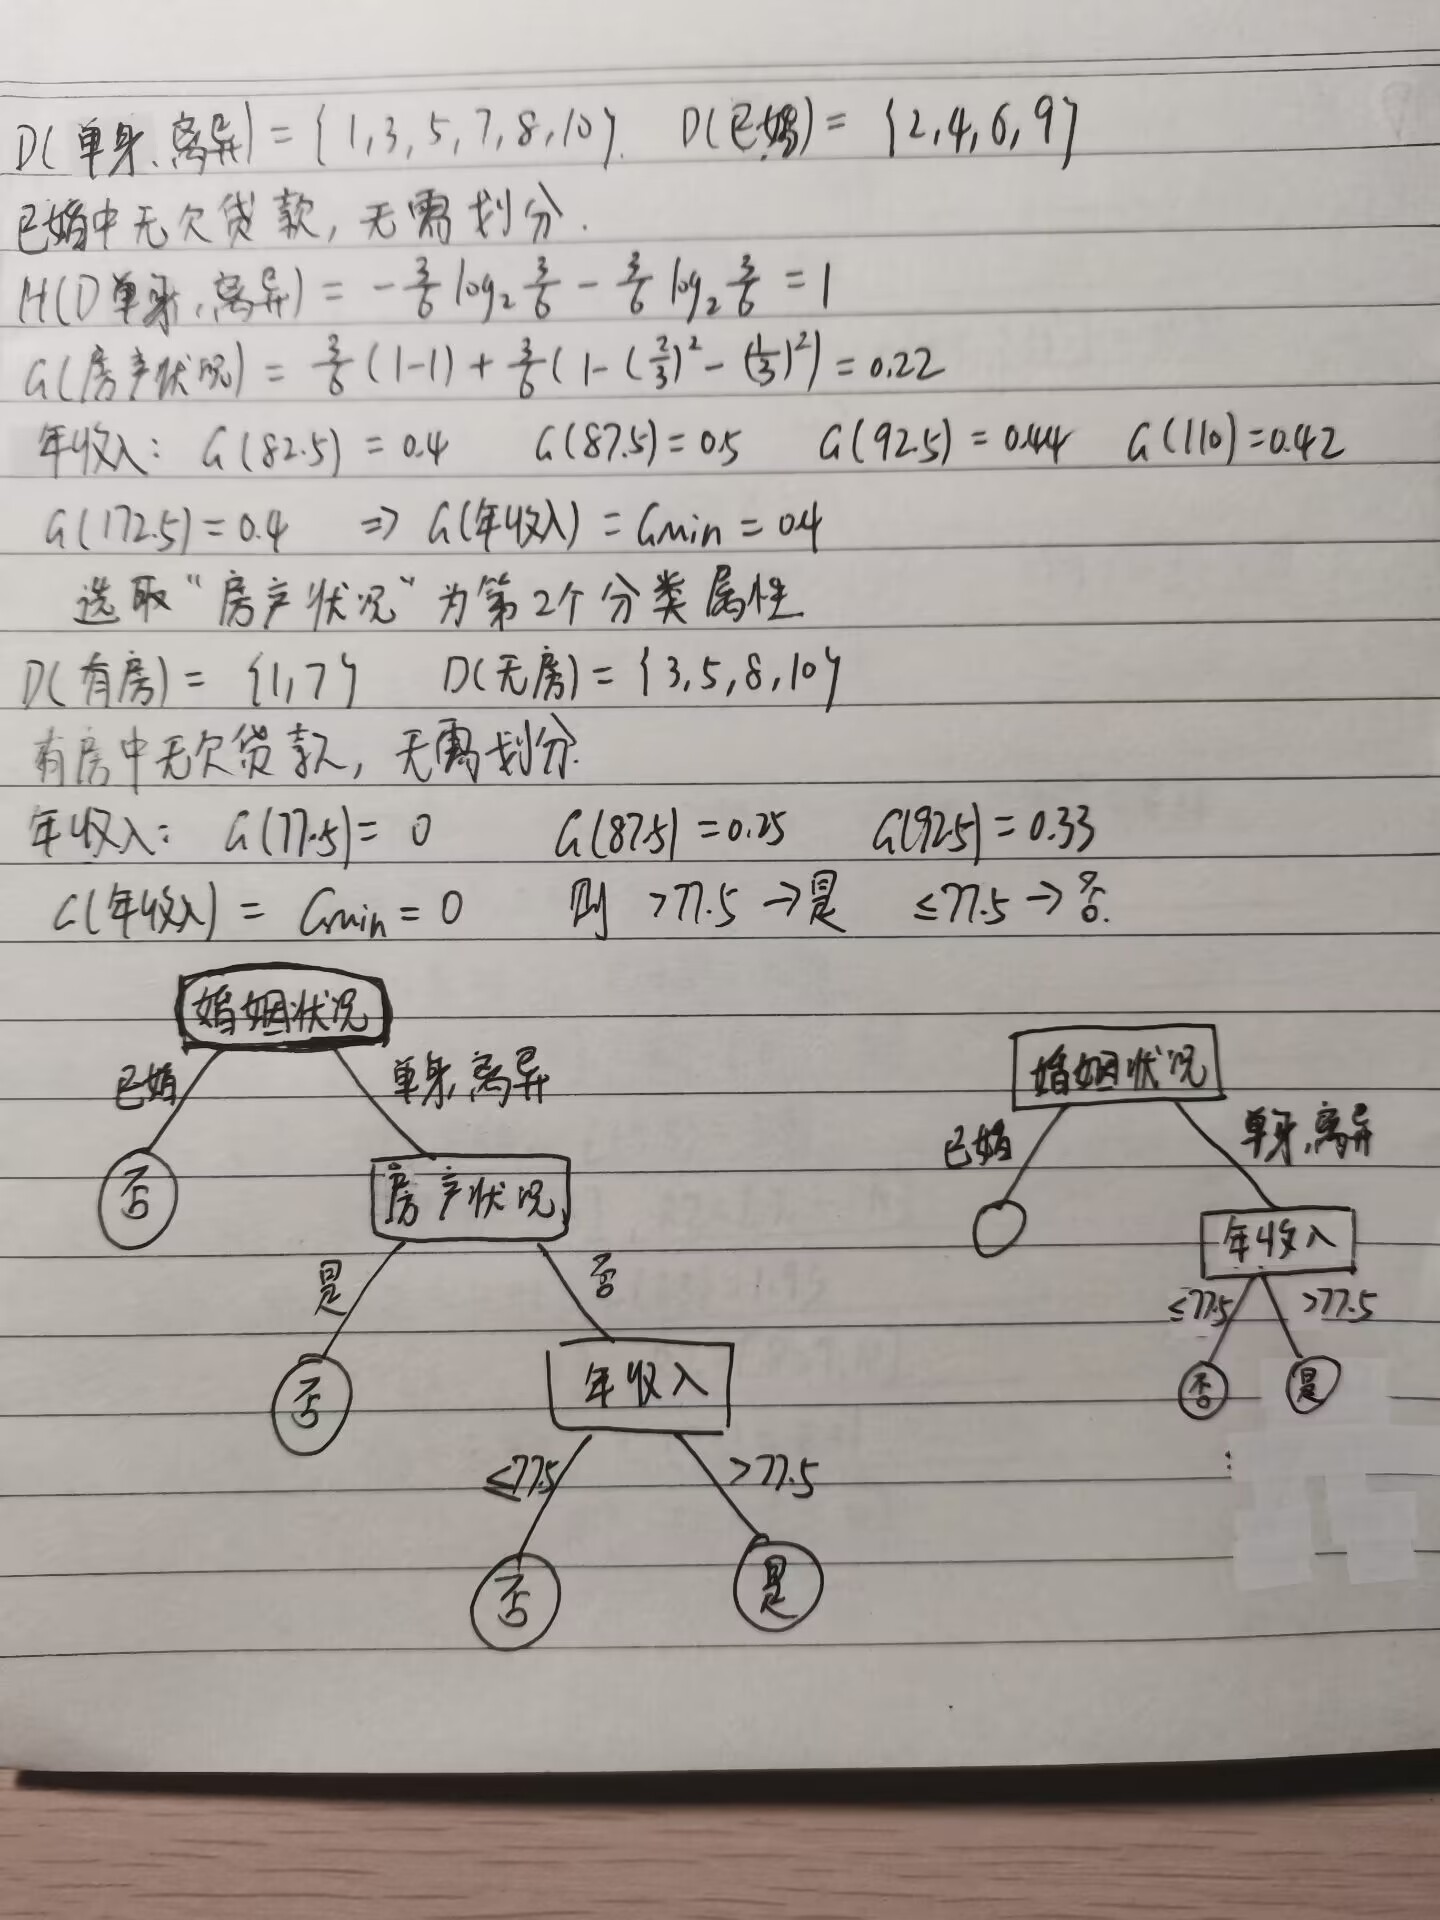 D(单身,离异) = {1,3,5,7,8,10}. D(已婚) = {2,4,6,9}
已婚中无欠贷款,无需划分.
H(D单身,离异) = -3/6 log₂ 3/6 - 3/6 log₂ 3/6 = 1
G(房产状况) = 3/6 (1-1) + 3/6 (1-(2/3)² - (1/3)²) = 0.22
年收入: G(82.5) = 0.4 G(87.5) = 0.5 G(92.5) = 0.44 G(110) = 0.42
G(172.5) = 0.4 ⇒ G(年收入) = Gmin = 0.4
选取“房产状况”为第2个分类属性
D(有房) = {1,7} D(无房) = {3,5,8,10}
有房中无欠贷款,无需划分.
年收入: G(77.5) = 0 G(87.5) = 0.25 G(92.5) = 0.33
G(年收入) = Gmin = 0 则 >77.5 → 是 ≤77.5 → 否.
婚姻状况
已婚 单身,离异
否 房产状况
是 否
否 年收入
≤77.5 >77.5
否 是
婚姻状况
已婚 单身,离异
年收入
≤77.5 >77.5
否 是
: